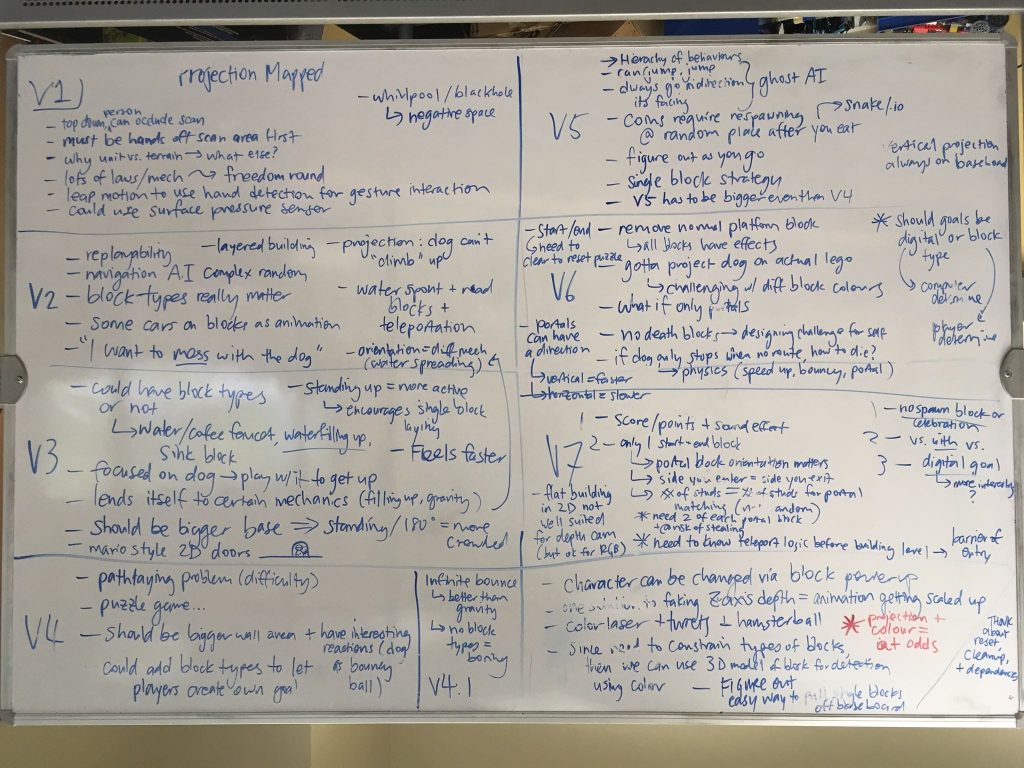 Projection Mapped
V1
person
- top down, can occlude scan
- must be hands off scan area first
- why unit vs. terrain → what else?
- lots of laws/mech → freedom round
- leap motion to use hand detection for gesture interaction
- could use surface pressure sensor
- whirlpool/blackhole
↳ negative space
V2
- replayability
- navigation AI complex random
- block-types really matter
- Some cars on blocks as animation
- "I want to mess with the dog"
- layered building
- projection: dog can't
"climb" up
- water spout + road
blocks +
teleportation
- orientation = diff mech
(water spreading)
V3
- could have block types
or not
↳ Water/cofee faucet, waterfilling up,
Sink block
- focused on dog → play w/it to get up
- lends itself to certain mechanics (filling up, gravity)
- Should be bigger base ⇒ standing/180° = more
crowded
- mario style 2D doors
- Standing up = more active
↳ encourages single block
laying
- Feels faster
V4
- pathfaying problem (difficulty)
- puzzle game...
- Should be bigger wall area + have interesting
reactions (dog
as bouncy
ball)
could add block types to let
players create own goal
Infinite bounce
↳ better than
gravity
↳ no block
types =
boring
V4.1
V5
→ Hierarchy of behaviours
- ran jump, jump
- always go in direction
its facing
ghost AI
- Coins require respawning
@ random place after you eat
→ snake/.io
- figure out as you go
- Single block strategy
- V5 has to be bigger even than V4
Vertical projection
always on baseboard
V6
- Start/end
↳ need to
clear to reset puzzle
- portals
can have
a direction
↳ vertical = faster
↳ horizontal = slower
- remove normal platform block
↳ all blocks have effects
- gotta project dog on actual lego
↳ challenging w/ diff block colours
- What if only portals
- no death blocks → designing challenge for self
- if dog only stops when no route, how to die?
↳ physics (speed up, bouncy, portal)
* Should goals be
digital or block
type
computer
determine
player
determine
V7
1 - Score/points + sound effect
2 - only 1 start + end block
↳ portal block orientation matters
↳ side you enter = side you exit
↳ # of studs = # of studs for portal
matching
* need 2 of each portal block
+ @ risk of stealing
* need to know teleport logic before building level → barrier of
entry
- flat building
in 2D not
well suited
for depth cam
(but ok for RGB)
1 - no spawn block or
celebration
2 - vs. with vs.
3 - digital goal
↳ more interesting
?
- Character can be changed via block powerup
- one solution to faking Z axis depth = animation getting scaled up
- color laser + turrets + hamsterball
- Since need to constrain types of blocks,
then we can use 3D model of block for detection
using color
- Figure out
easy way to pull single blocks
off baseboard
* projection +
colour =
at odds
Think
about
reset,
cleanup,
+ dependencies